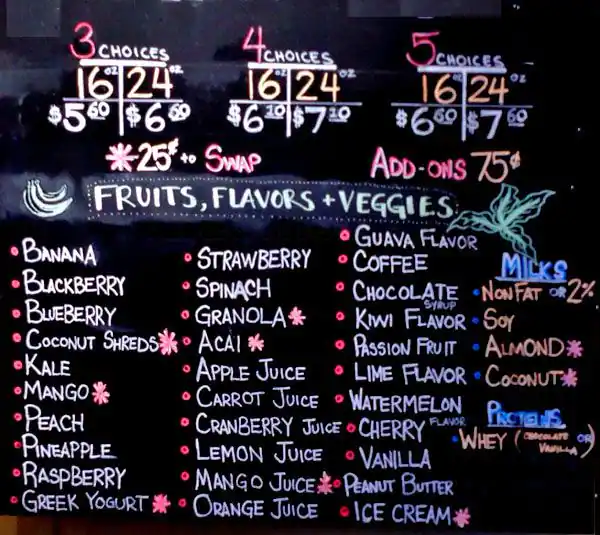 3 CHOICES
16 oz 24 oz
$5 60 $6 60
4 CHOICES
16 oz 24 oz
$6 10 $7 10
5 CHOICES
16 oz 24 oz
$6 60 $7 60
* 25¢ to SWAP
ADD-ONS 75¢
FRUITS, FLAVORS + VEGGIES
• BANANA
• BLACKBERRY
• BLUEBERRY
• COCONUT SHREDS *
• KALE
• MANGO *
• PEACH
• PINEAPPLE
• RASPBERRY
• GREEK YOGURT *
• STRAWBERRY
• SPINACH
• GRANOLA *
• ACAI *
• APPLE JUICE
• CARROT JUICE
• CRANBERRY JUICE
• LEMON JUICE
• MANGO JUICE *
• ORANGE JUICE
• GUAVA FLAVOR
• COFFEE
• CHOCOLATE SYRUP
• KIWI FLAVOR
• PASSION FRUIT
• LIME FLAVOR
• WATERMELON
• CHERRY FLAVOR
• VANILLA
• PEANUT BUTTER
• ICE CREAM *
MILKS
• NONFAT OR 2%
• SOY
• ALMOND *
• COCONUT *
PROTEINS
• WHEY (CHOCOLATE OR VANILLA)